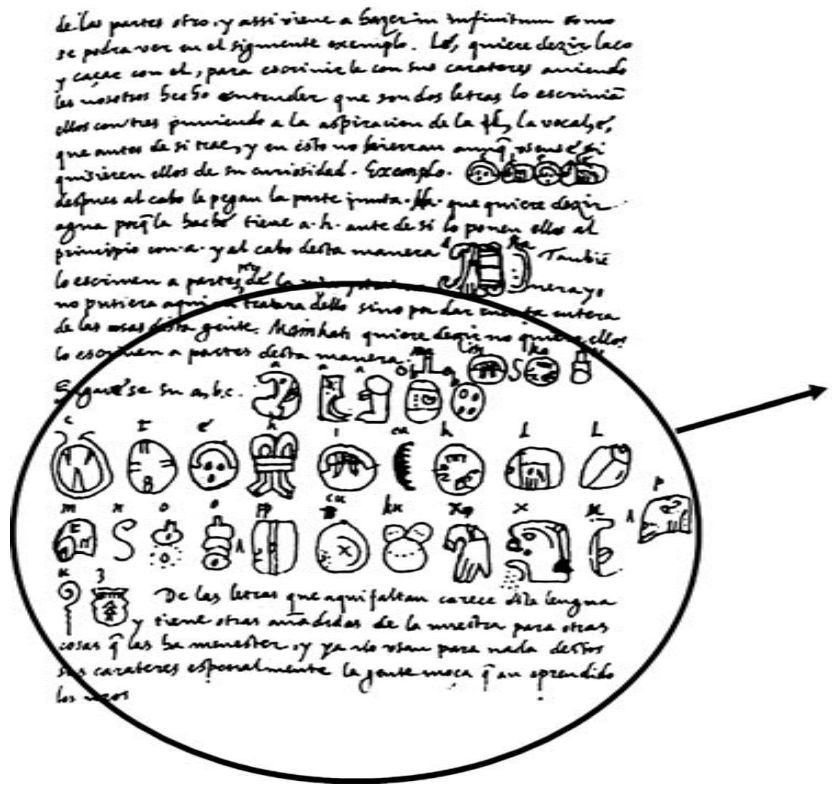 de las partes otro, y assi viene a hazer in infinitum como
se podra ver en el siguiente exemplo. Lé, quiere dezir laço
y caçar con el, para escrivirle con sus carateres aviendo
les nosotros hecho entender que son dos letras lo escrivian
ellos con tres puniendo a la aspiracion de la l, la vocal, é,
que antes de si trae, y en esto no hierran aunq̃ usense si
quisieren ellos de su curiosidad. Exemplo.
despues al cabo le pegan la parte junta. Ha. que quiere dezir
agua porq̃ la hache tiene a. h. ante de si lo ponen ellos al
principio con a. y al cabo desta manera a ha Tambie
lo escriven a partes
no pusiera aqui ni tratara dello sino por dar cuenta entera
de las cosas desta gente. Mainkati quiere dezir no quiero ellos
lo escriven a partes desta manera. ma i n ka ti
Siguese su a, b, c. a a a b b
c t é h i ca k l l
m n o o pp cu ku x x u p
u z De las letras que aqui faltan carece esta lengua
y tiene otras añadidas de la nuestra para otras
cosas q̃ las ha menester, y ya no usan para nada destos
sus carateres especialmente la gente moça q̃ an aprendido
los nros